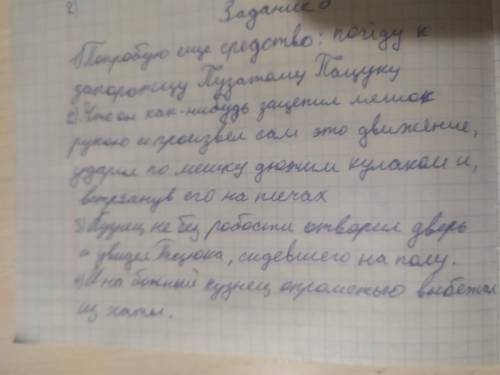 2) Задание 8
1) Попробую еще средство: пойду к
запорожцу Пузатому Пацуку
2) Что он как-нибудь зацепил мешок
рукою и произвел сам это движение,
ударил по мешку дюжим кулаком и,
встряхнув его на плечах
3) Кузнец не без робости отворил дверь
и увидел Пацюка, сидевшего на полу.
4) И на божный кузнец опрометью выбежал
из хаты.